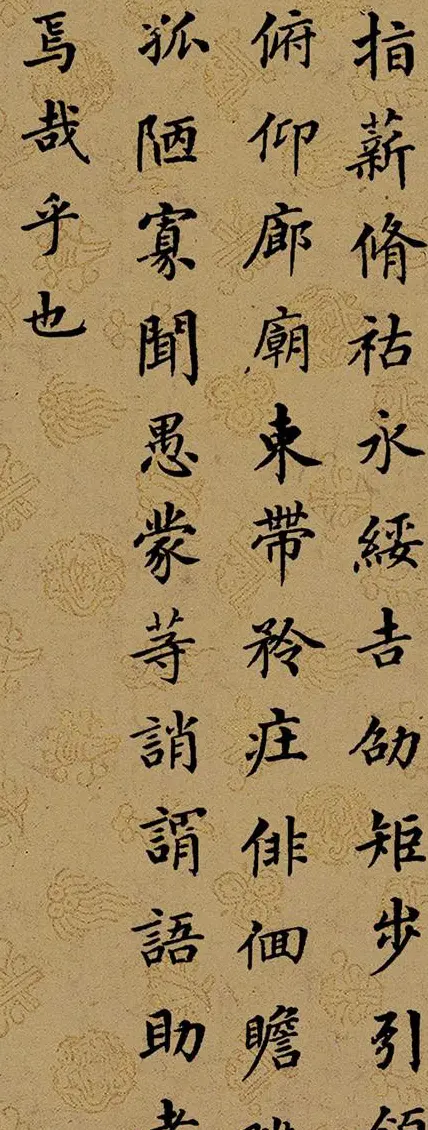 指薪脩祜永綏吉劭矩步引領
俯仰廊廟束帶矜莊俳佪瞻眺
孤陋寡聞愚蒙等誚謂語助者
焉哉乎也